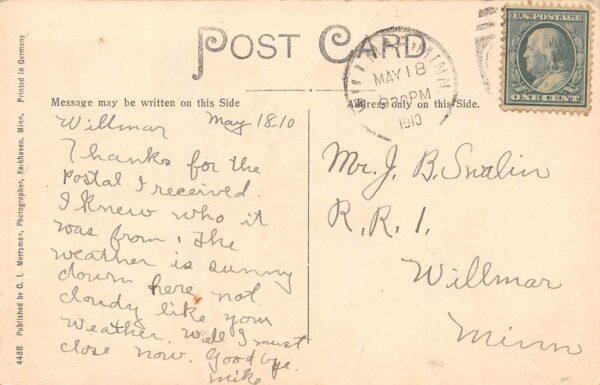 POST CARD
Message may be written on this Side
Address only on this Side
U.S. POSTAGE
ONE CENT
WILLMAR, MINN.
MAY 18
930PM
1910
Willmar May 18 10
Thanks for the
Postal I received.
I knew who it
was from. The
weather is sunny
down here not
cloudy like your
weather. Well I must
close now. Goodbye.
Mike
Mr. J. B. Swalin
R. R. 1.
Willmar
Minn
4438 Published by C. L. Merryman, Photographer, Kerkhoven, Minn. Printed in Germany